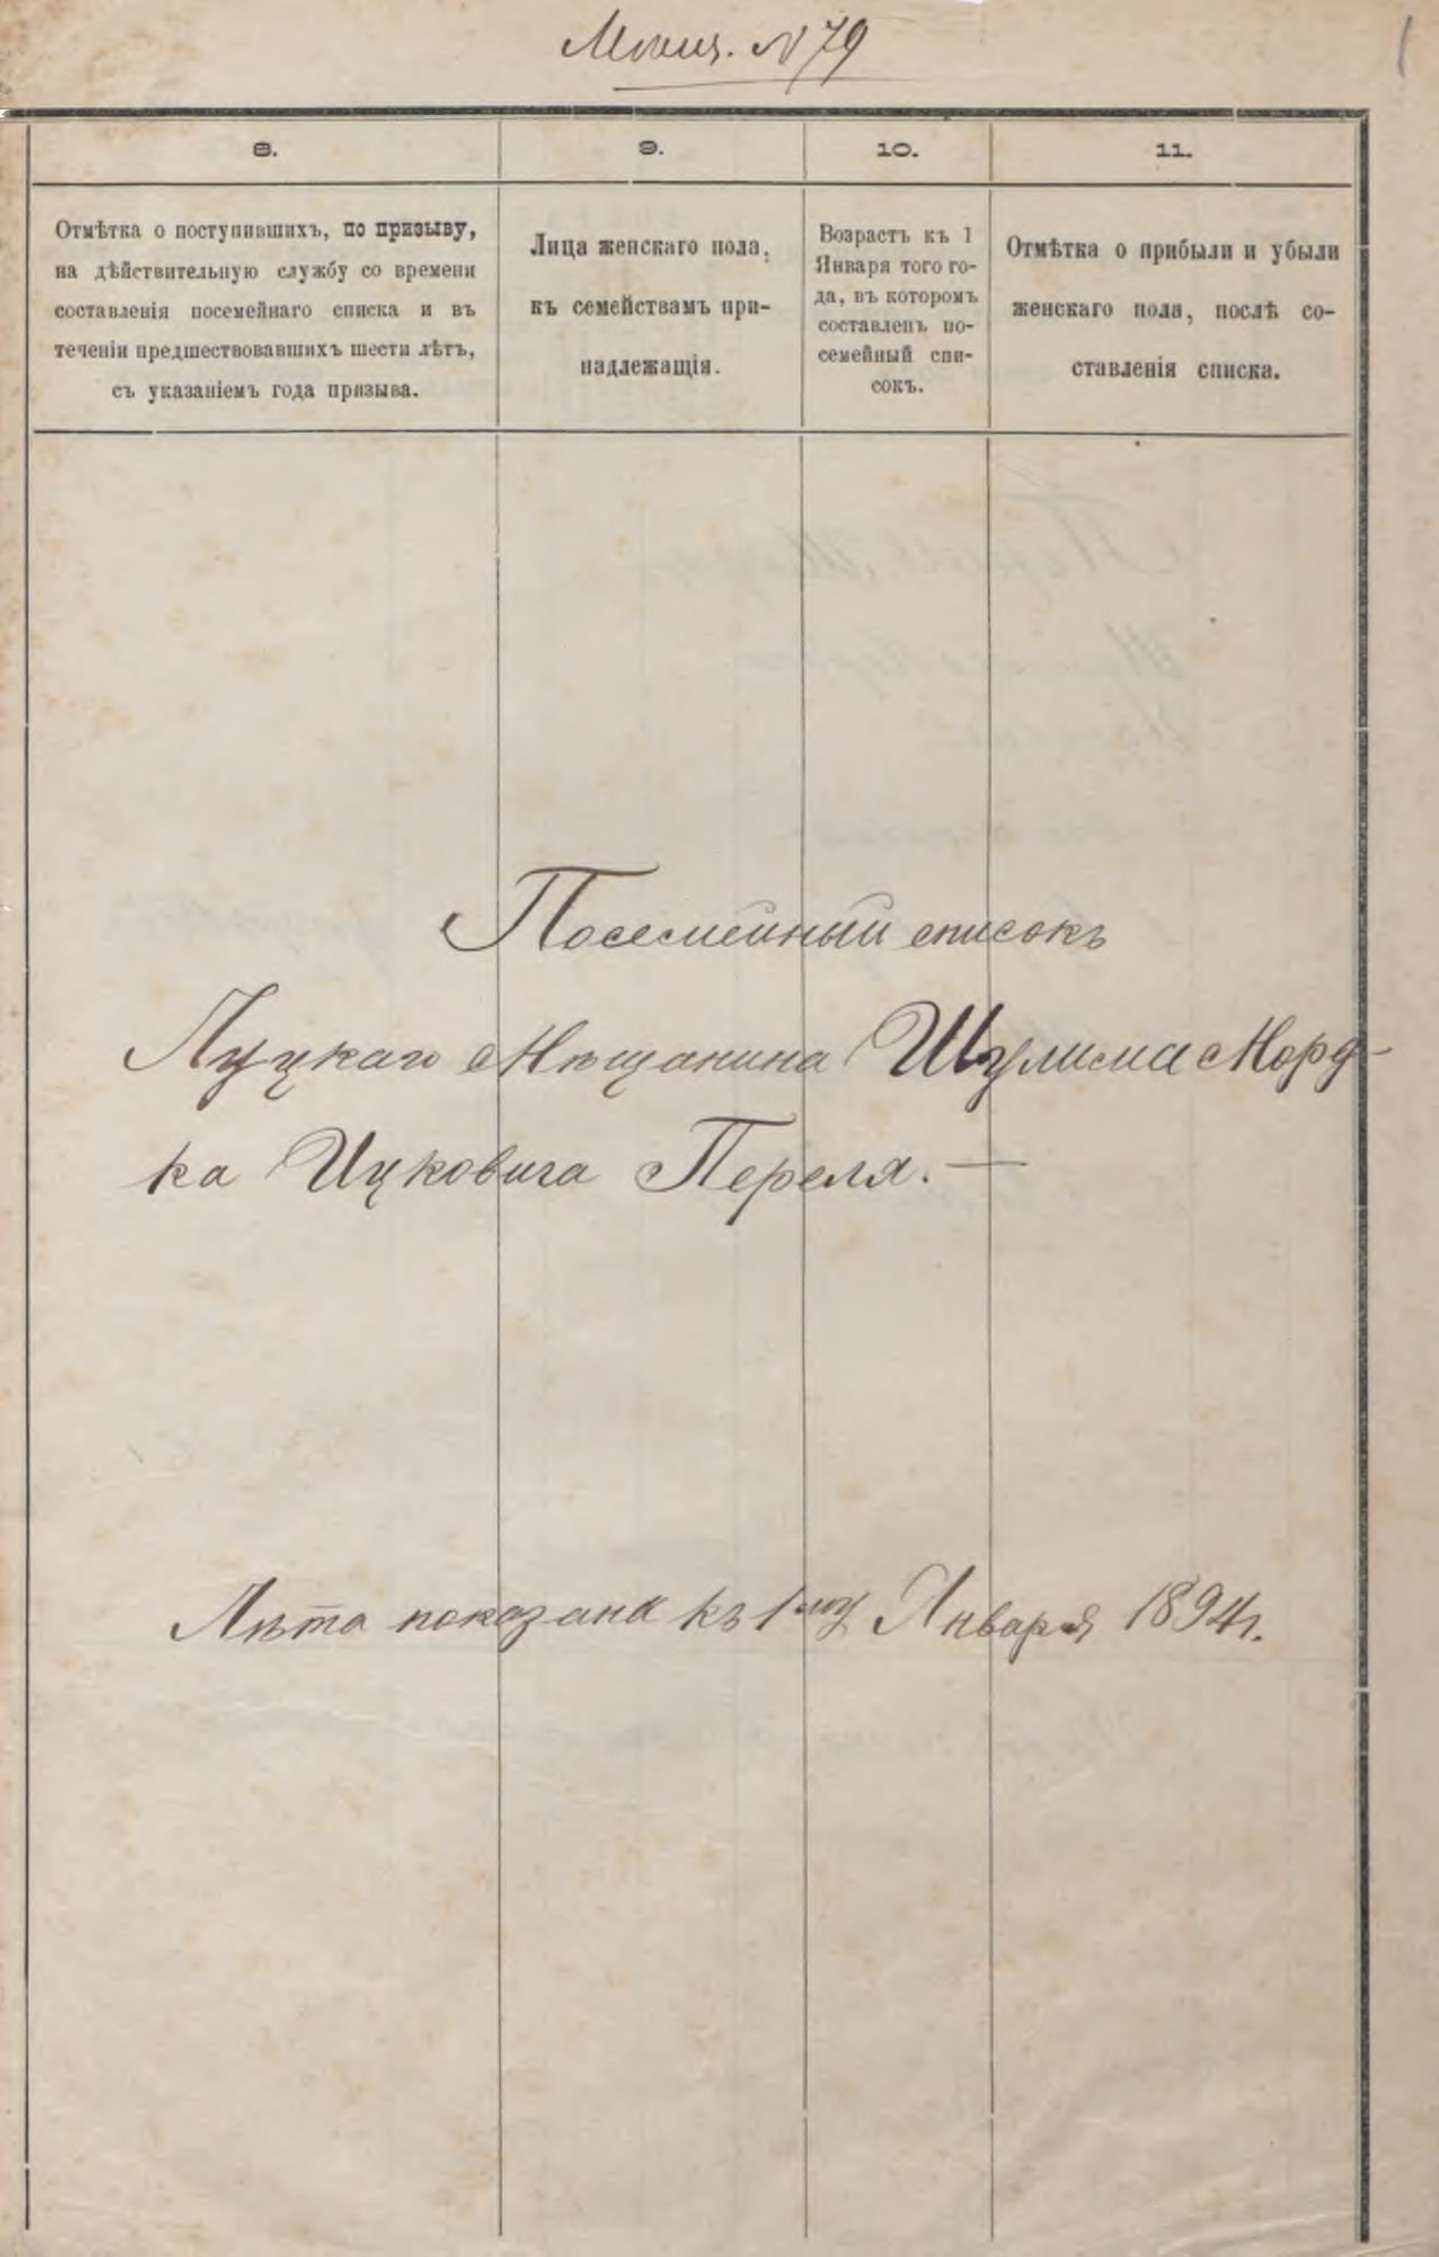 № 79
8.
9.
10.
11.
Отмѣтка о поступившихъ, по призыву,
на дѣйствительную службу со времени
составленія посемейнаго списка и въ
теченіи предшествовавшихъ шести лѣтъ,
съ указаніемъ года призыва.
Лица женскаго пола,
къ семействамъ при-
надлежащія.
Возрастъ къ 1
Января того го-
да, въ которомъ
составленъ по-
семейный спи-
сокъ.
Отмѣтка о прибыли и убыли
женскаго пола, послѣ со-
ставленія списка.
Посемейный списокъ
Луцкаго Мѣщанина Шулима Морд-
ка Ицковича Переля. —
Лѣта показана къ 1му Января 1894 г.